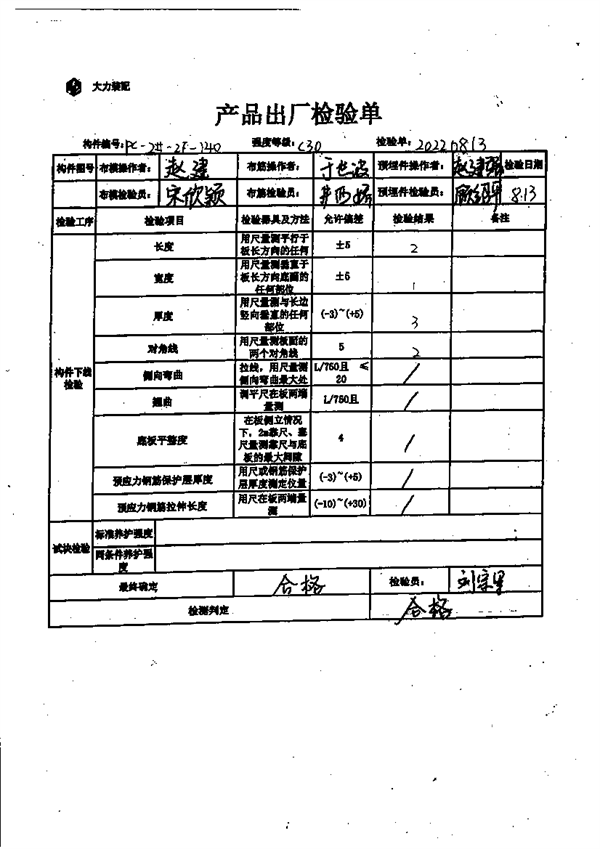 大力装配
产品出厂检验单
构件编号: PC-2#-2F-140 强度等级: C30 检验单: 20220813
构件图号 布模操作者: 赵建 布筋操作者: 预埋件操作者: 赵建强 检验日期
布模检验员: 宋欣颖 布筋检验员: 预埋件检验员: 8.13
检验工序 检验项目 检验器具及方法 允许偏差 检验结果 备注
构件下线检验
长度 用尺量测平行于板长方向的任何 ±5 2
宽度 用尺量测垂直于板长方向底面的任何部位 ±5 1
厚度 用尺量测与长边竖向垂直的任何部位 (-3)~(+5) 3
对角线 用尺量测板面的两个对角线 5 2
侧向弯曲 拉线，用尺量测侧向弯曲最大处 L/750且 ≤20 /
翘曲 测平尺在板两端量测 L/750且 /
底板平整度 在板侧立情况下，2m靠尺、塞尺量测靠尺与底板的最大间隙 4 /
预应力钢筋保护层厚度 用尺或钢筋保护层厚度测定仪量 (-3)~(+5) /
预应力钢筋拉伸长度 用尺在板两端量测 (-10)~(+30) /
试块检验 标准养护强度
同条件养护强度
最终确定 合格 检验员:
检测判定 合格